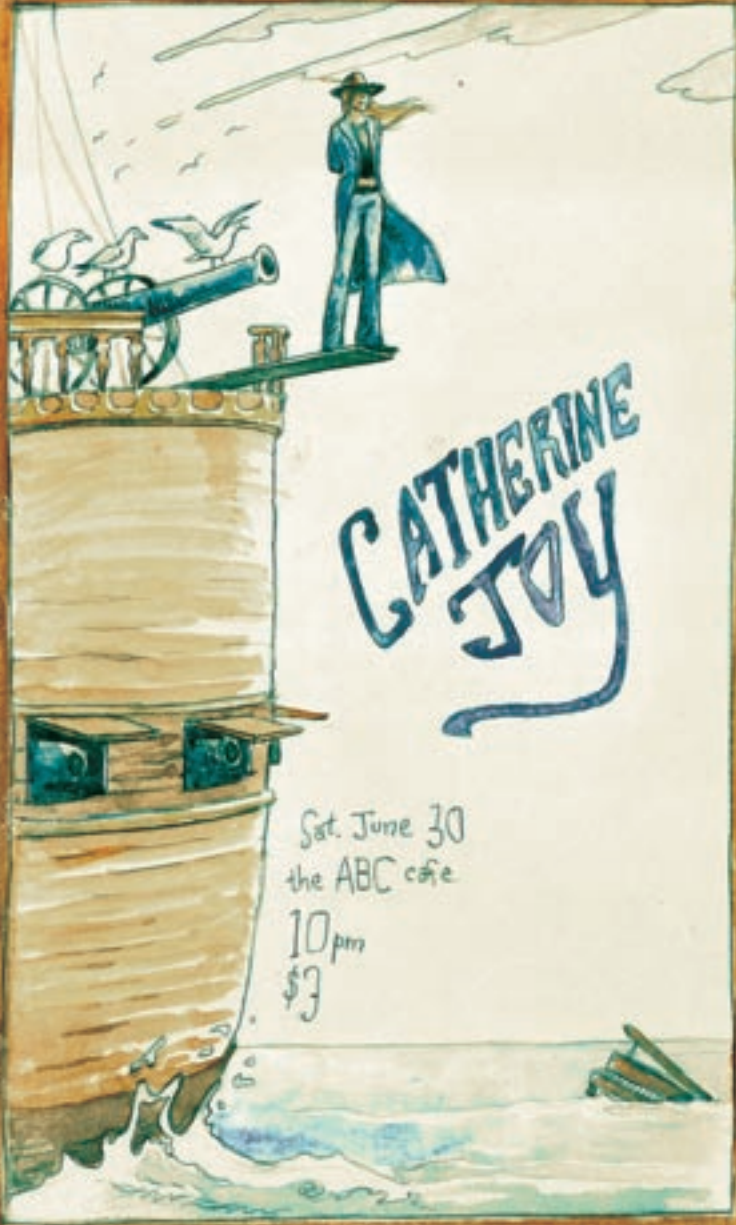 CATHERINE
JOY
Sat. June 30
the ABC cafe
10pm
$3